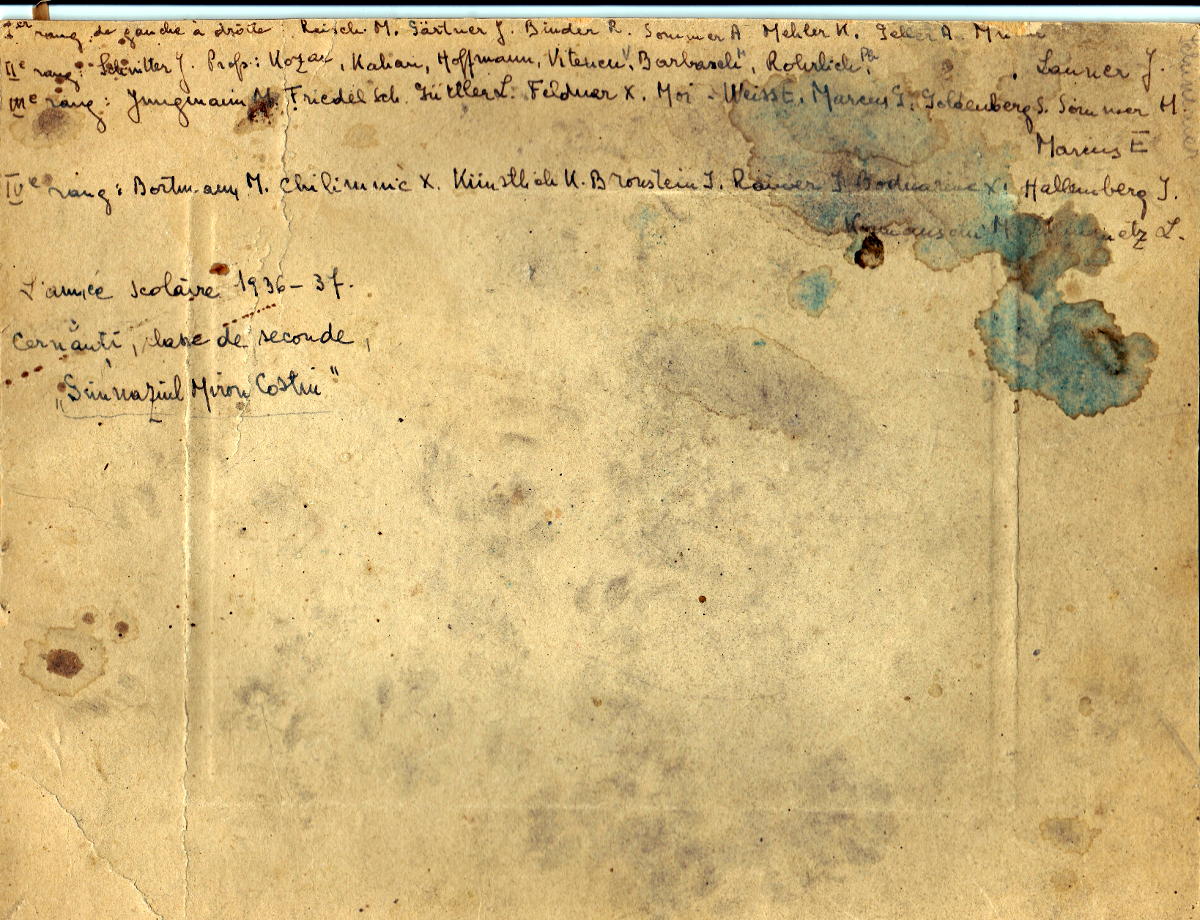 Ier rang de gauche à droite Reisch M. Gärtner J. Binder R. Sommer A Mehler K. Geller A.
IIe rang: Schnitter J. Prof.: Kozak, Kahan, Hoffmann, Vitencu V, Barbasch H, Rohrlich Ph. Launer J.
IIIe rang: Jungmann M. Friedel Sch. Güttler L. Feldner X. Moi - Weiss E. Marcus I. Goldenberg S. Sommer H.
Marcus E
IVe rang: Bortmann M. X. Künstlich K. Bronstein I. Rainer I Bodnariuc X. Hallenberg J.
M L.
L'année scolaire 1936-37.
Cernăuţi, classe de seconde,
„Gimnaziul Miron Costin"